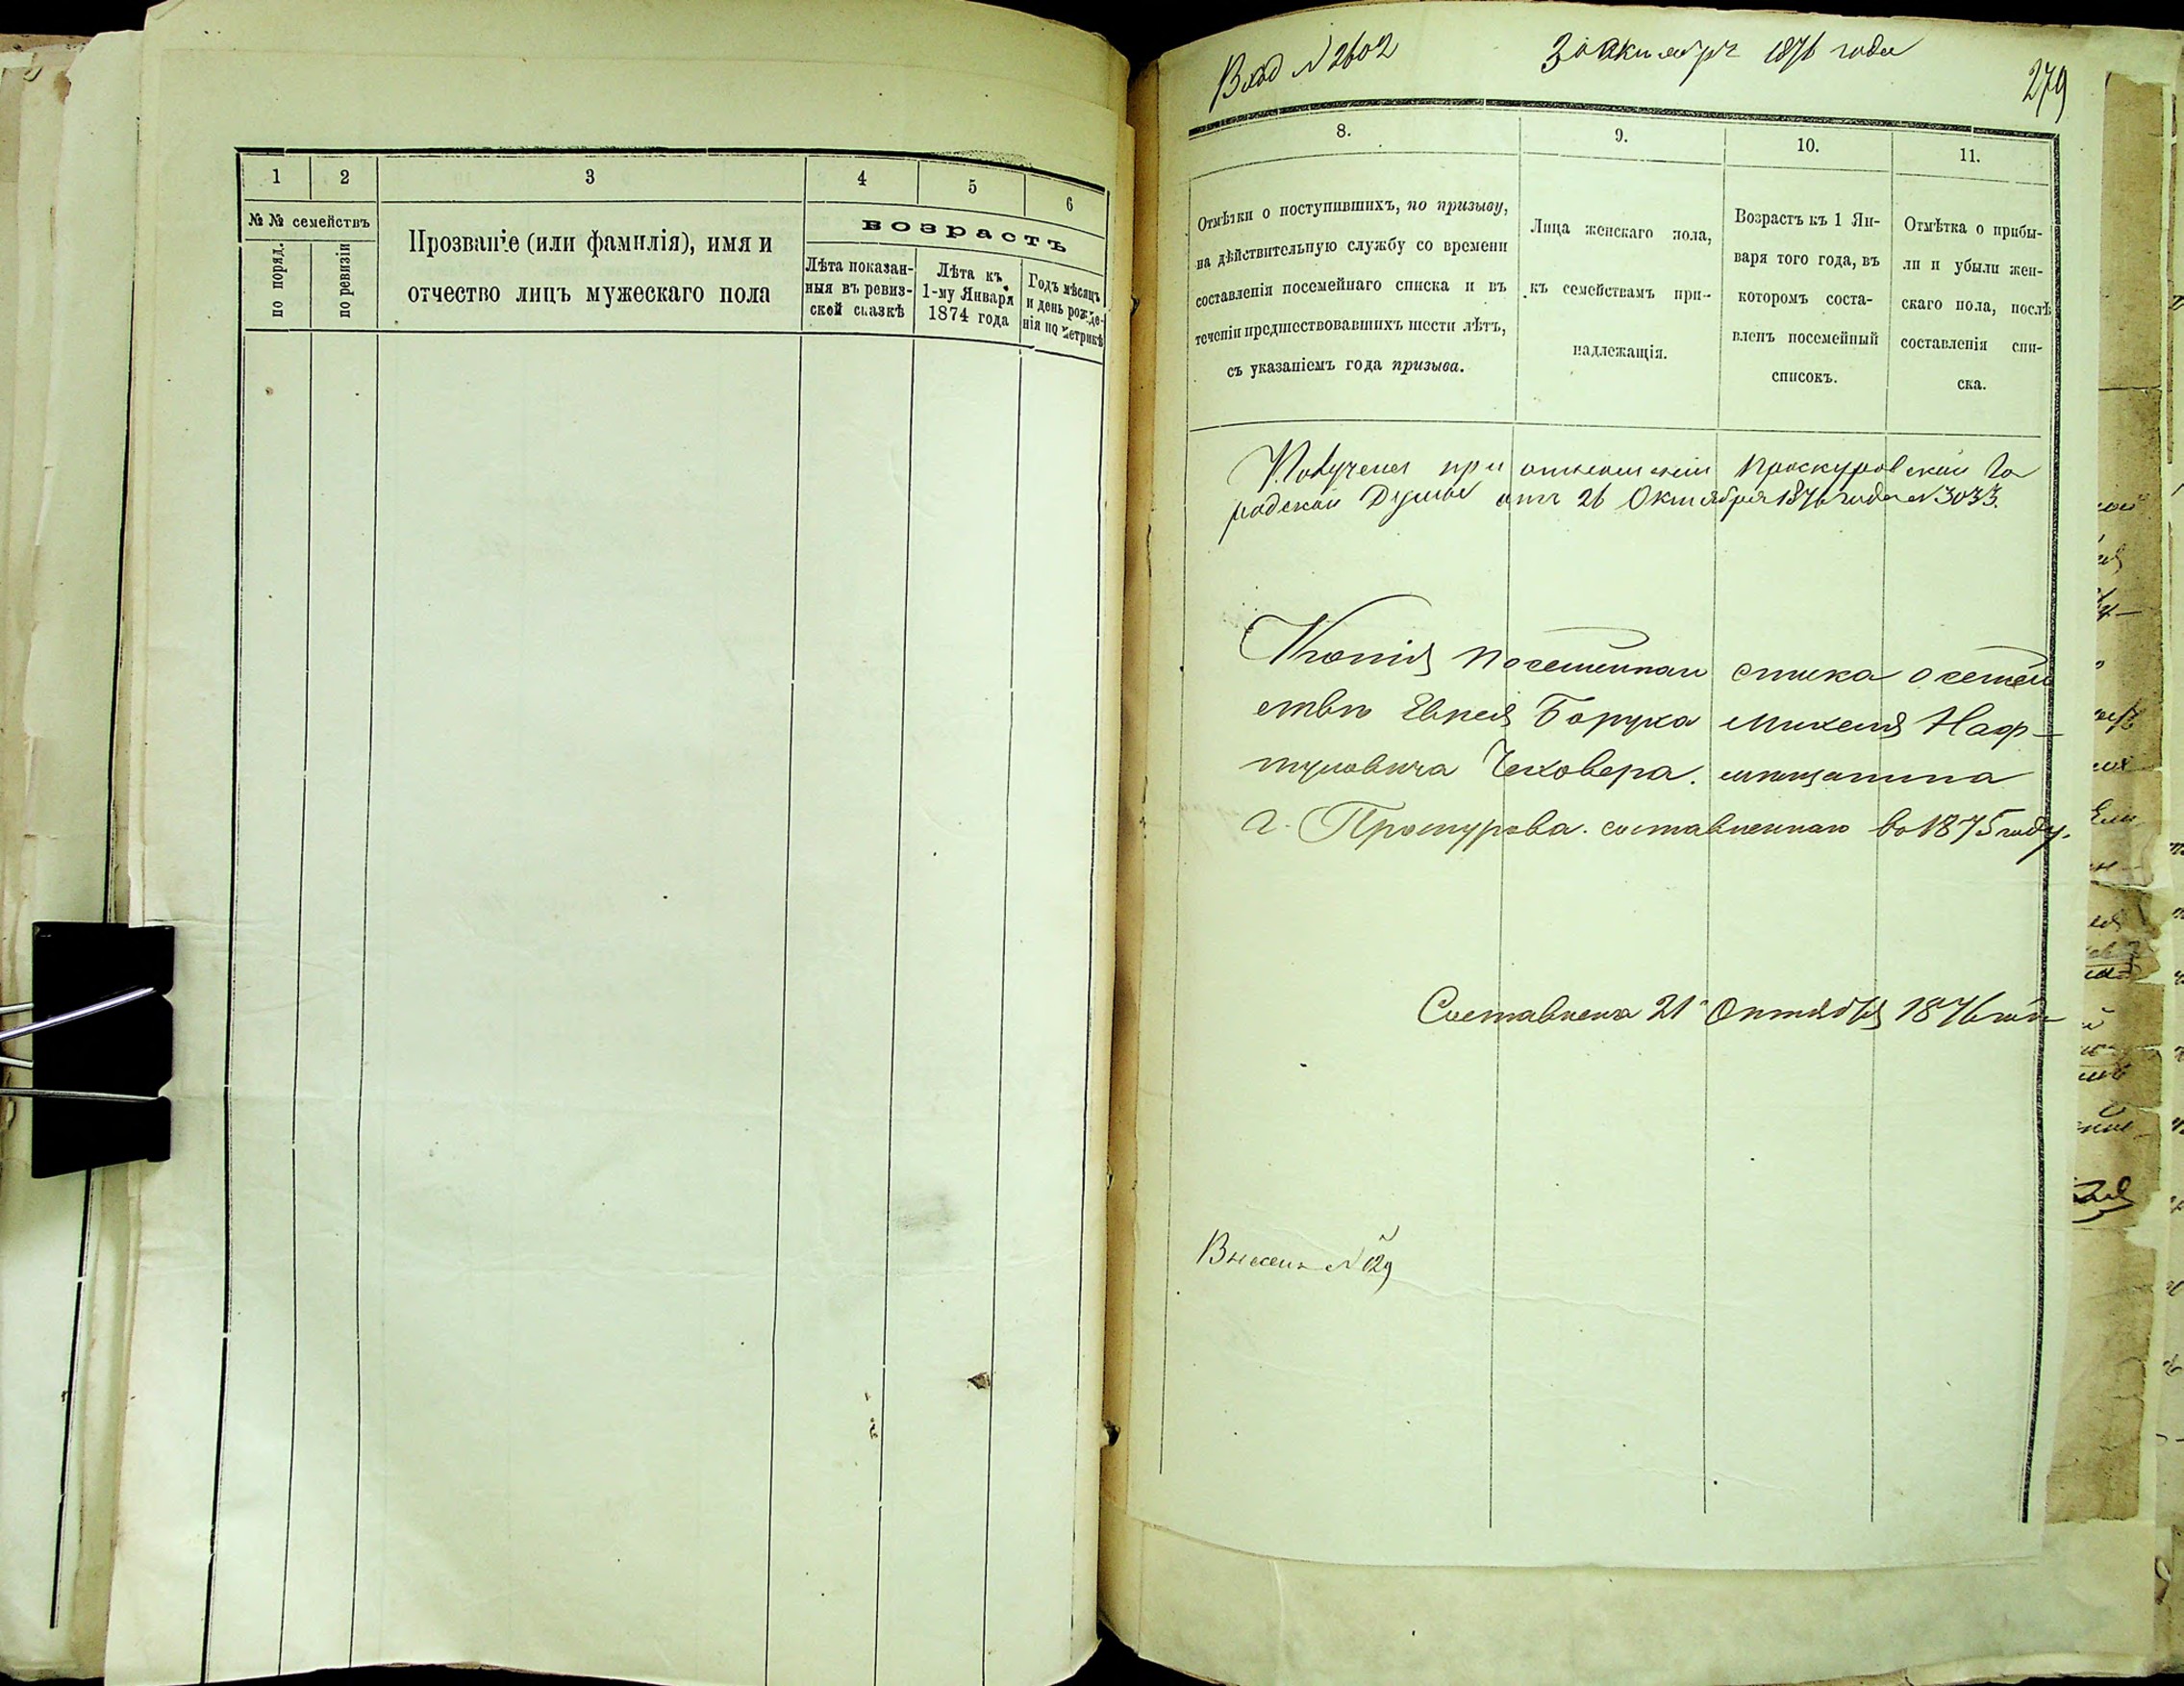 1 2 3 4 5 6
№ № семействъ
по поряд.
по ревизіи
Прозваніе (или фамилія), имя и
отчество лицъ мужескаго пола
возрастъ
Лѣта показан-
ныя въ ревиз-
ской сказкѣ
Лѣта къ
1-му Января
1874 года
Годъ мѣсяцъ
и день рожде-
нія по метрикѣ
Вход № 2602 30 Октября 1876 года
279
8. 9. 10. 11.
Отмѣтки о поступившихъ, по призыву,
на дѣйствительную службу со времени
составленія посемейнаго списка и въ
теченіи предшествовавшихъ шести лѣтъ,
съ указаніемъ года призыва.
Лица женскаго пола,
къ семействамъ при-
надлежащія.
Возрастъ къ 1 Ян-
варя того года, въ
которомъ соста-
вленъ посемейный
списокъ.
Отмѣтка о прибы-
ли и убыли жен-
скаго пола, послѣ
составленія спи-
ска.
Получена при отношеніи Проскуровской Го
родской Думы отъ 26 Октября 1876 года № 3033.
Копія посемейнаго списка о семей
ствѣ Еврея Боруха Михеля Наф-
туловича Чеховера. мѣщанина
г. Проскурова. составленнаго въ 1875 году.
Составлена 21 Октября 1876 года
№ 129